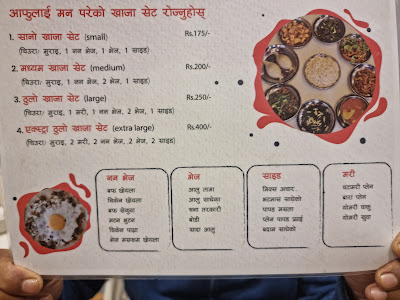 आफुलाई मन परेको खाजा सेट रोज्नुहोस्
1. सानो खाजा सेट (small) Rs.175/-
(चिउरा/ मुराइ, 1 नन भेज, 1 भेज, 1 साइड)
2. मध्यम खाजा सेट (medium) Rs.200/-
(चिउरा/ मुराइ, 1 नन भेज, 2 भेज, 1 साइड)
3. ठुलो खाजा सेट (large) Rs.250/-
(चिउरा/ मुराइ, 1 मरी, 1 नन भेज, 2 भेज, 1 साइड)
4. एक्स्ट्रा ठुलो खाजा सेट (extra large) Rs.400/-
(चिउरा/ मुराइ, 2 मरी, 2 नन भेज, 2 भेज, 2 साइड)
नन भेज
बफ छोयला
चिकेन छोयला
बफ सेकुवा
मटन भुटन
चिकेन पाङ्ग्रा
भेज मसरूम छोयला
भेज
आलु तामा
आलु साधेको
चना तरकारी
बोडी
सादा आलु
साइड
मिक्स अचार
भटमास साधेको
पापड मसला
प्लेन पापड फ्राई
बदाम साधेको
मरी
चटामरी प्लेन
बारा प्लेन
योमरी चाकु
योमरी खुवा